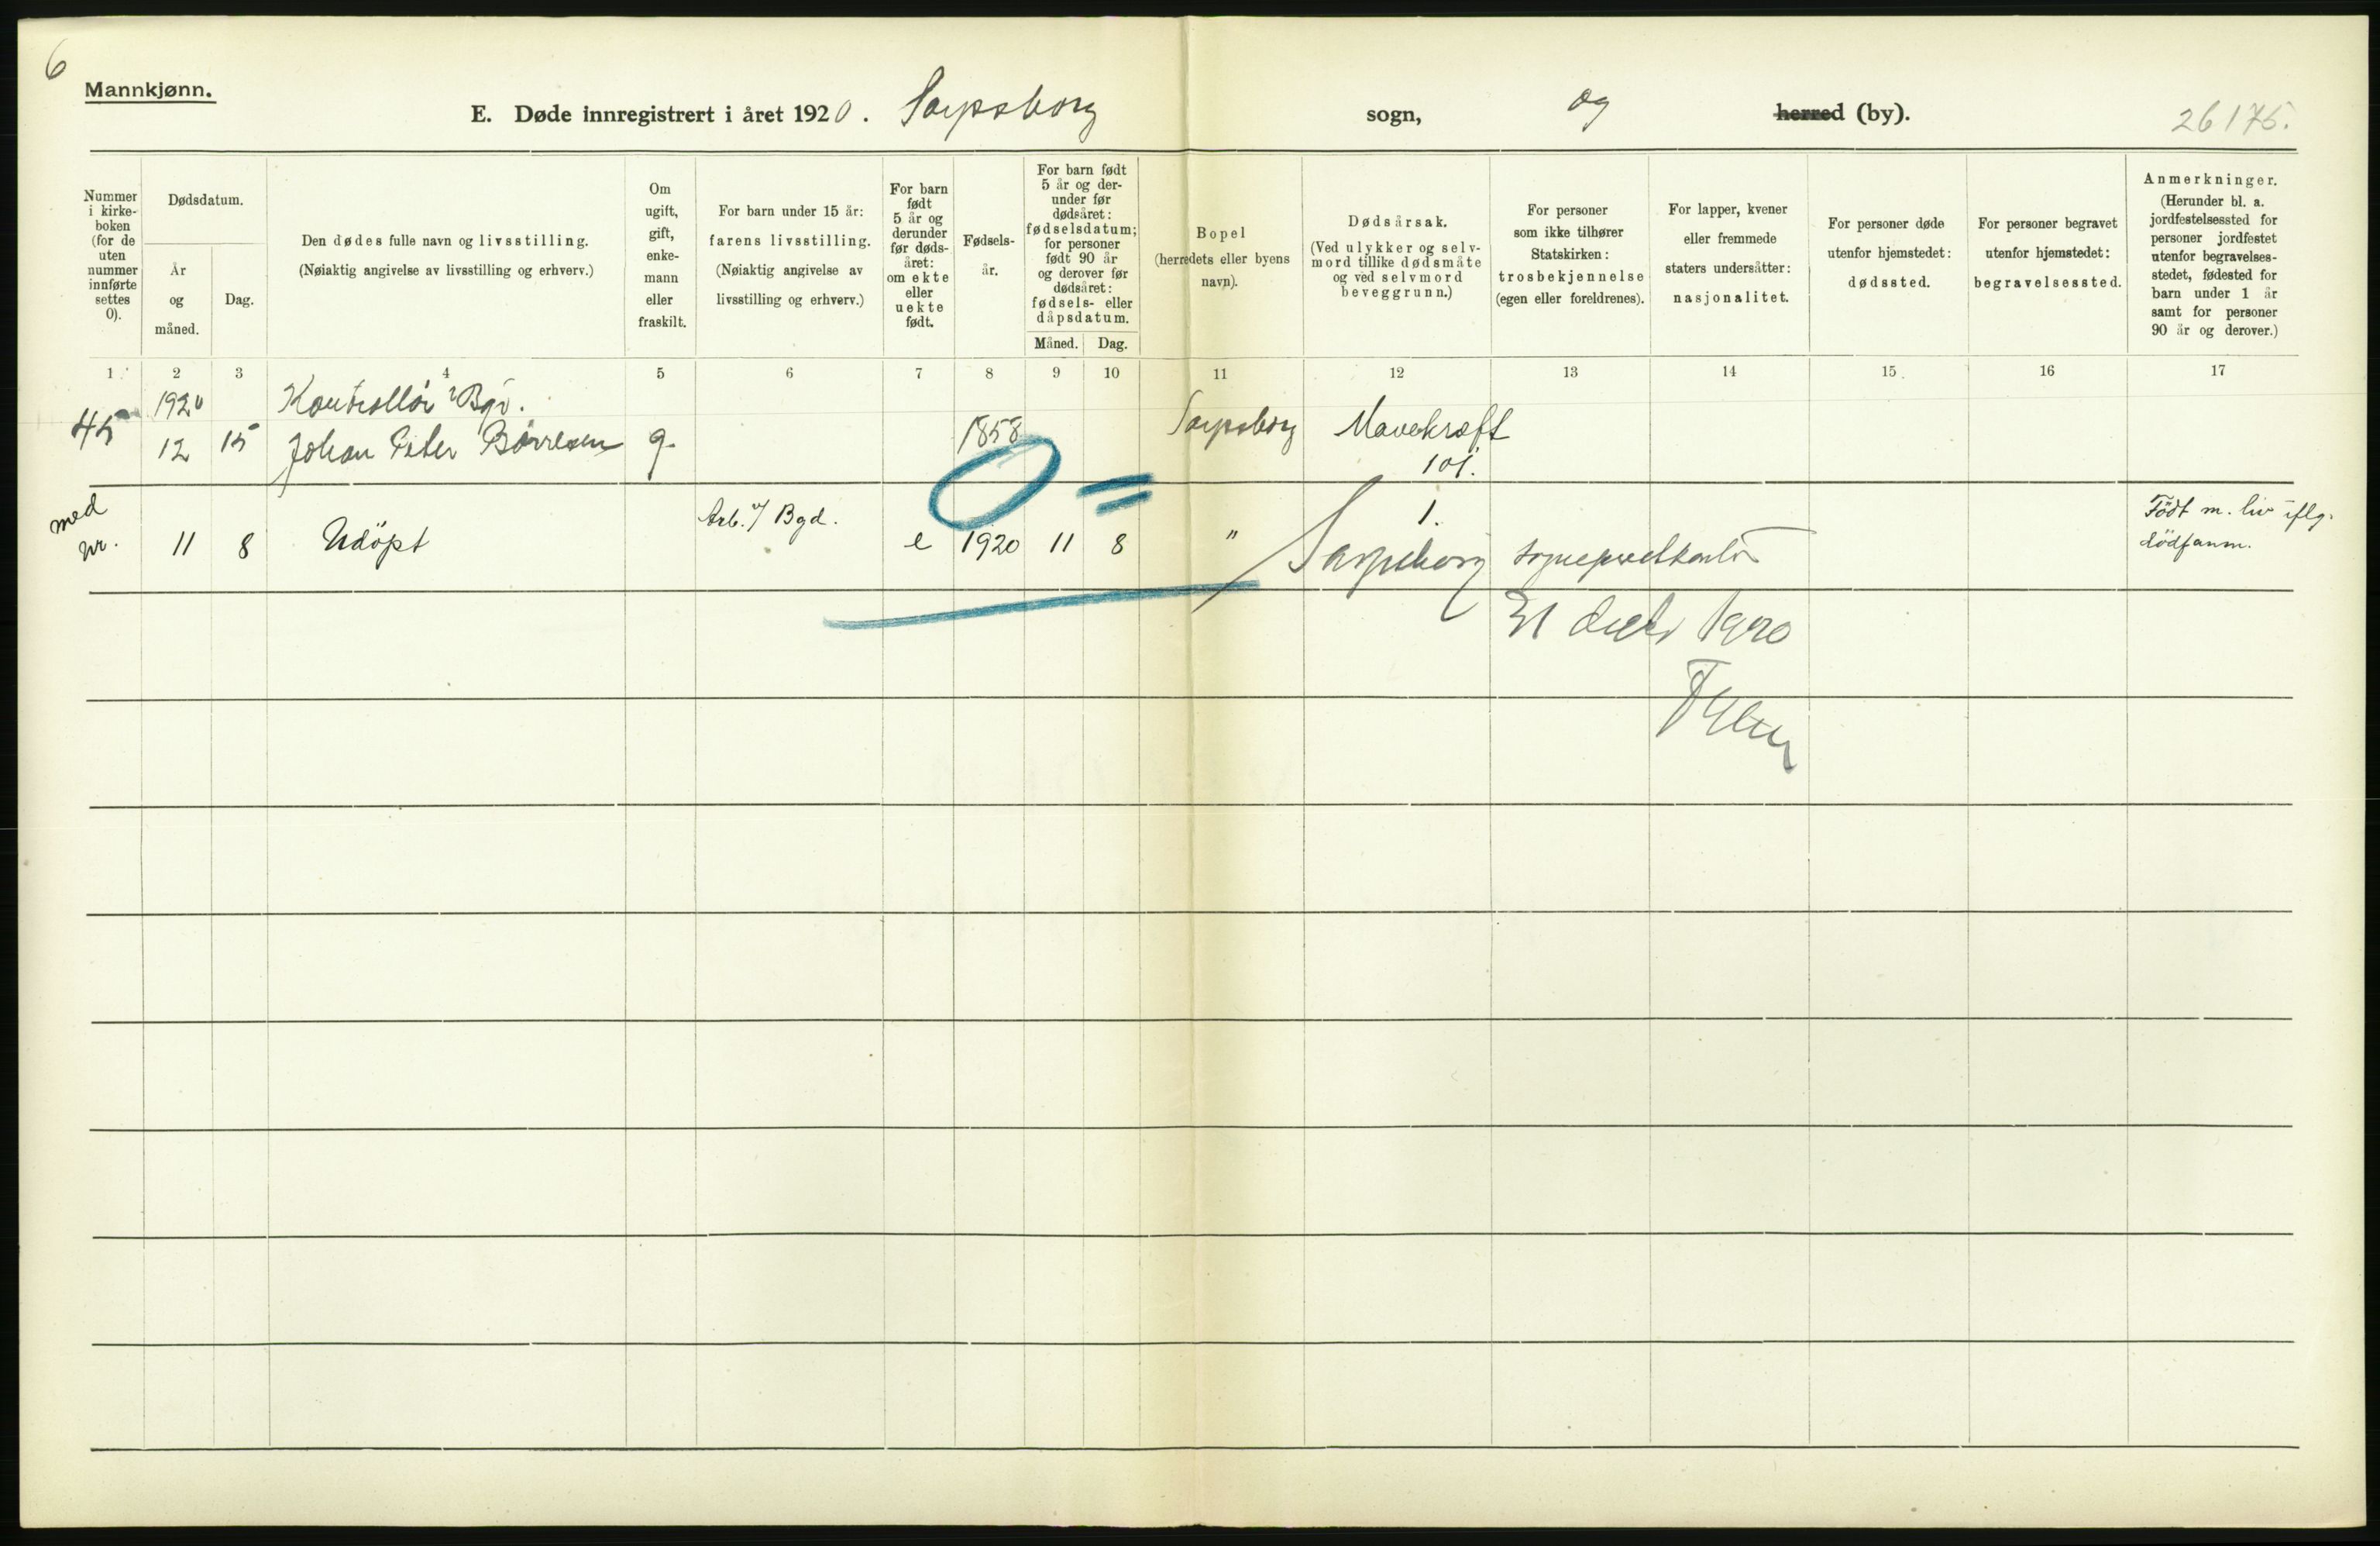 6
Mannkjønn.
E. Døde innregistrert i året 1920. Sarpsborg sogn, og herred (by).
26175.
Nummer i kirke-boken (for de uten nummer innførte settes 0).
Dødsdatum.
År og måned.
Dag.
Den dødes fulle navn og livsstilling.
(Nøiaktig angivelse av livsstilling og erhverv.)
Om ugift, gift, enke-mann eller fraskilt.
For barn under 15 år:
farens livsstilling.
(Nøiaktig angivelse av livsstilling og erhverv.)
For barn født 5 år og derunder før døds-året: om ekte eller uekte født.
Fødsels-år.
For barn født 5 år og der-under før dødsåret: fødselsdatum; for personer født 90 år og derover før dødsåret: fødsels- eller dåpsdatum.
Måned. Dag.
Bopel
(herredets eller byens navn).
Dødsårsak.
(Ved ulykker og selv-mord tillike dødsmåte og ved selvmord beveggrunn.)
For personer som ikke tilhører Statskirken:
trosbekjennelse
(egen eller foreldrenes).
For lapper, kvener eller fremmede staters undersåtter:
nasjonalitet.
For personer døde utenfor hjemstedet:
dødssted.
For personer begravet utenfor hjemstedet:
begravelsessted.
Anmerkninger.
(Herunder bl. a. jordfestelsessted for personer jordfestet utenfor begravelses-stedet, fødested for barn under 1 år samt for personer 90 år og derover.)
1 2 3 4 5 6 7 8 9 10 11 12 13 14 15 16 17
1920 Kontrollör Bgv.
45 12 15 Johan Peter Börresen g. 1858 Sarpsborg Mavekræft
101.
med nr. 11 8 Udöpt Arb. v/ Bgd. e 1920 11 8 " 1.
Födt m. liv iflg.
dödsanm.
Sarpsborg sogneprestkontor
31 decbr 1920